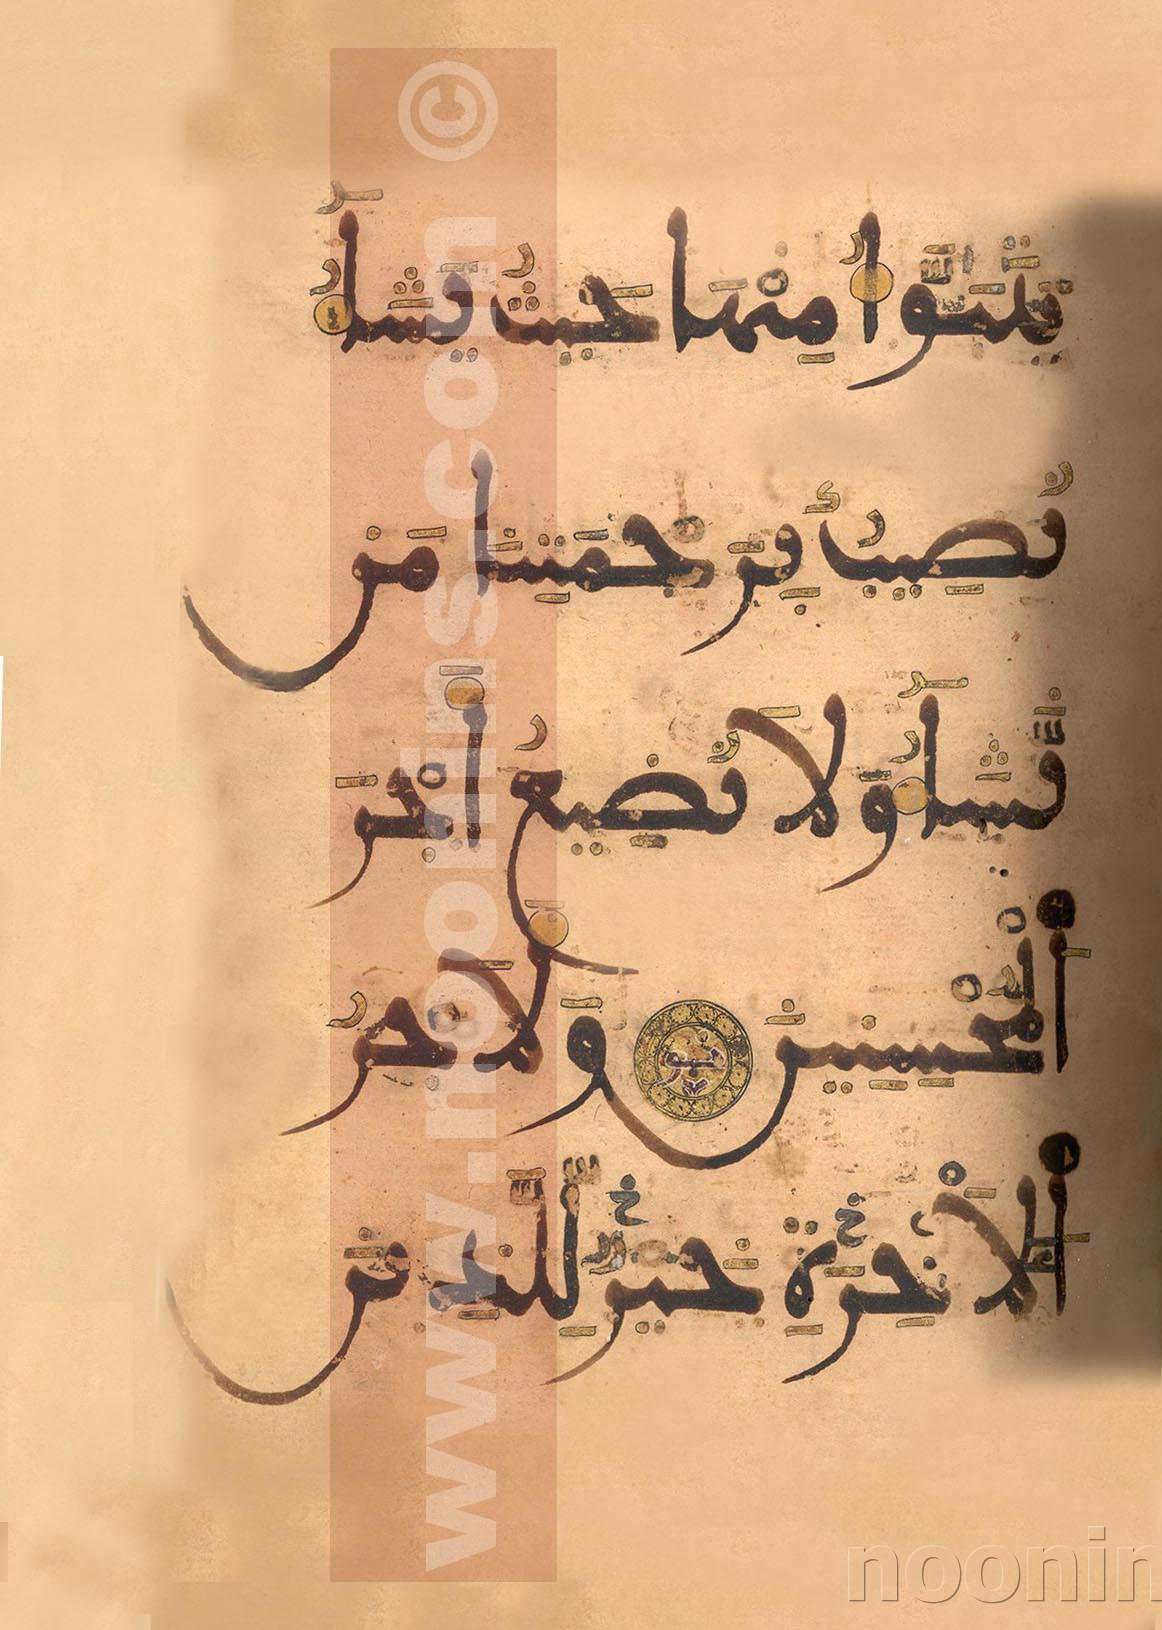 يَتَبَوَّأُ مِنْهَا حَيْثُ يَشَآءُ
نُصِيبُ بِرَحْمَتِنَا مَن
نَّشَآءُ وَلَا نُضِيعُ أَجْرَ
ٱلْمُحْسِنِينَ وَلَأَجْرُ
ٱلْأَخِرَةِ خَيْرٌ لِّلَّذِينَ
www.noonins.com ©
noonin